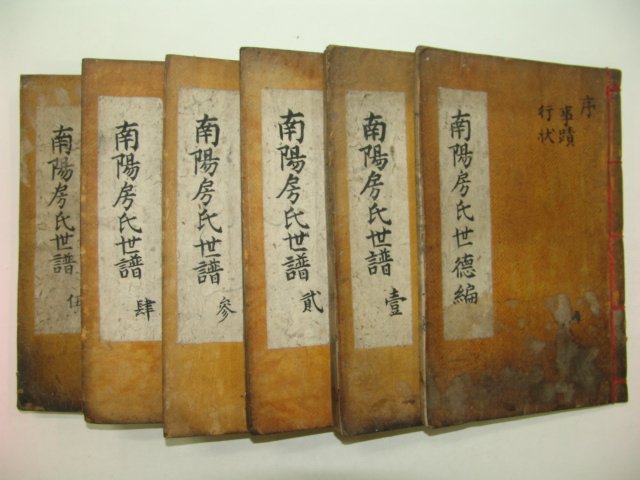 序
事蹟
行状
南陽房氏世德編
南陽房氏世譜 壹
南陽房氏世譜 貳
南陽房氏世譜 參
南陽房氏世譜 肆
南陽房氏世譜 伍